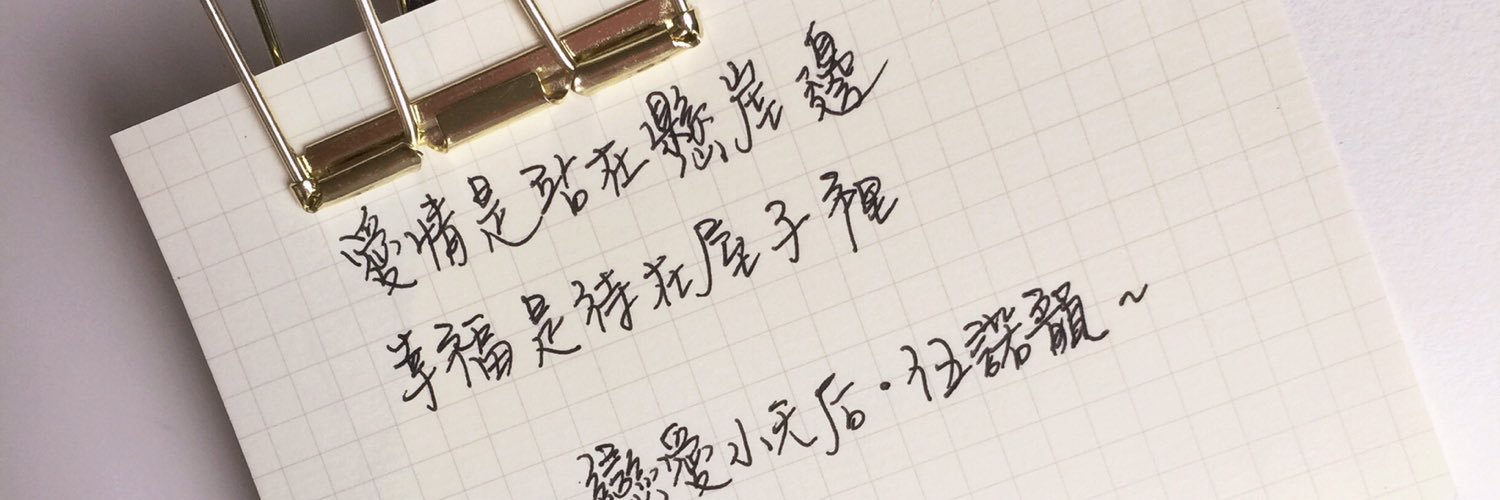 愛情是站在懸崖邊
幸福是待在屋子裡
戀愛小天后·伍諾韻~